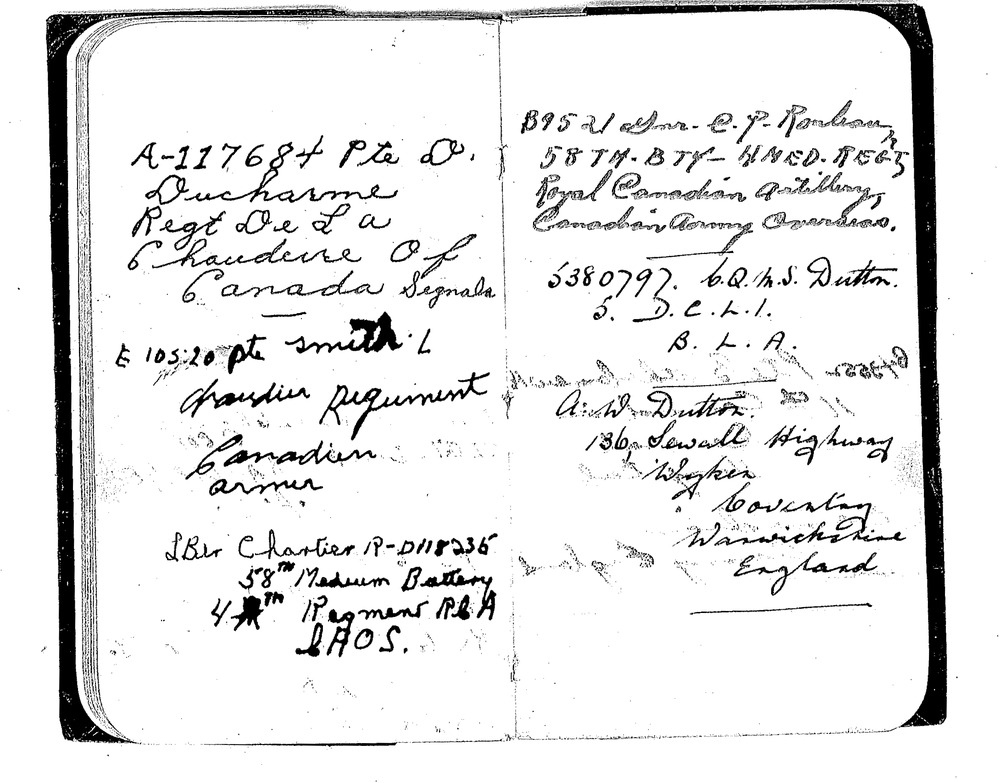 A-117684 Pte D.
Ducharme
Regt De La
Chaudiere Of
Canada Segnals
E 10520 pte smith L
chaudier Regument
Canadien
armer
LBdr Chartier R-D118235
58TH Medium Battery
4 TH Regment RCA
CAOS.
B9521 Gnr. C. P. Rouleau,
58TH. BTY- 4 MED. REGT,
Royal Canadian Artillery,
Canadian Army Overseas.
5380797. C.Q.M.S. Dutton.
5. D.C.L.I.
B. L. A.
A. W. Dutton.
136, Sewall Highway
Wyken
Coventry
Warwickshire
England